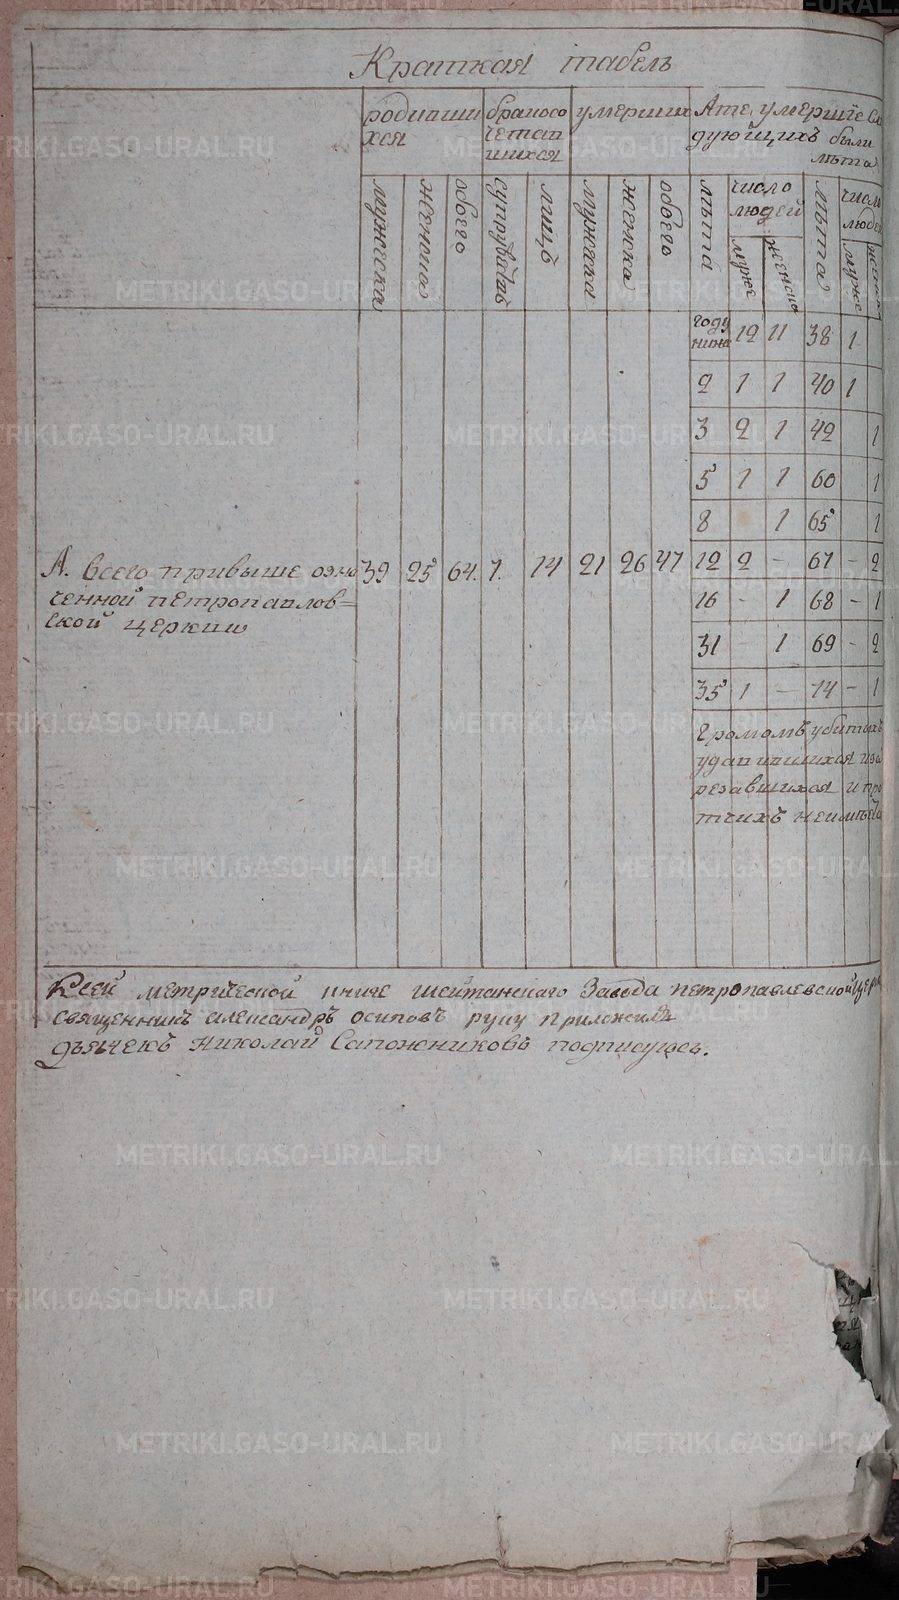 Краткая табель
родивши
хся
бракосо
четав
шихся
умерших
А те умершїе
дующихъ были
лѣта
мужеска
женска
обоего
супружествъ
лицъ
мужска
женска
обоего
лѣта
число
людей
муже
женско
лѣта
число
люде
муже
году
нина 12 11 38 1
2 1 1 40 1
3 2 1 42 1
5 1 1 60 1
8 1 65 1
А. всего привыше озна 39 25 64. 7. 14 21 26 47 12 2 - 67 - 2
ченной петропавлов=
ской церкви
16 - 1 68 - 1
31 - 1 69 - 2
35 1 - 74 - 1
Громомъ убитыхъ
удавившихся иза
резавшихся и про
тчихъ неимѣетца
Ксей метрической книге шайтанскаго Завода петропавлевской церк
священникъ александръ осиповъ руку приложилъ
дьячекъ Николай Сапожниковъ подписуюсь.
METRIKI.GASO-URAL.RU